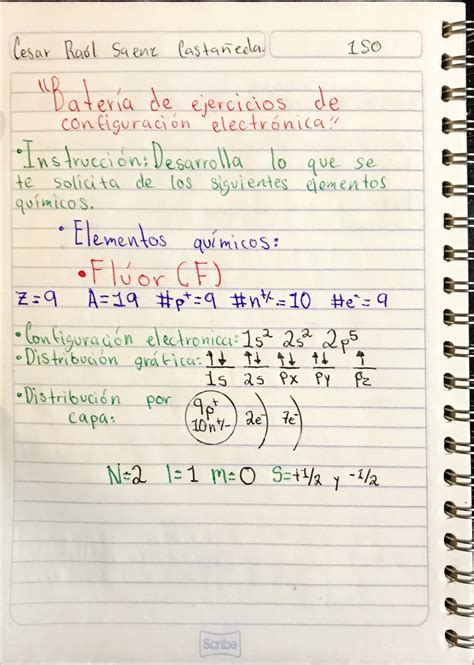 Cesar Raúl Saenz Castañeda 1SO
"Batería de ejercicios de
configuración electrónica."
•Instrucción: Desarrolla lo que se
te solicita de los siguientes elementos
químicos.
• Elementos químicos:
• Flúor (F)
Z=9 A=19 #p+=9 #n+/-=10 #e-=9
•Configuración electronica: 1s² 2s² 2p⁵
•Distribución gráfica: ↑↓ ↑↓ ↑↓ ↑↓ ↑
1s 2s Px Py Pz
•Distribución por
capa:
9p+
10n+/- 2e- 7e-
N=2 l=1 M=0 S=+1/2 y -1/2
Scribe